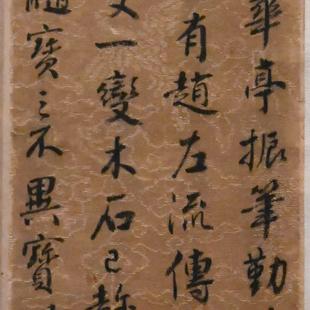 華亭振筆勤
有趙左流傳
一變木石已
隨寶之不異寶